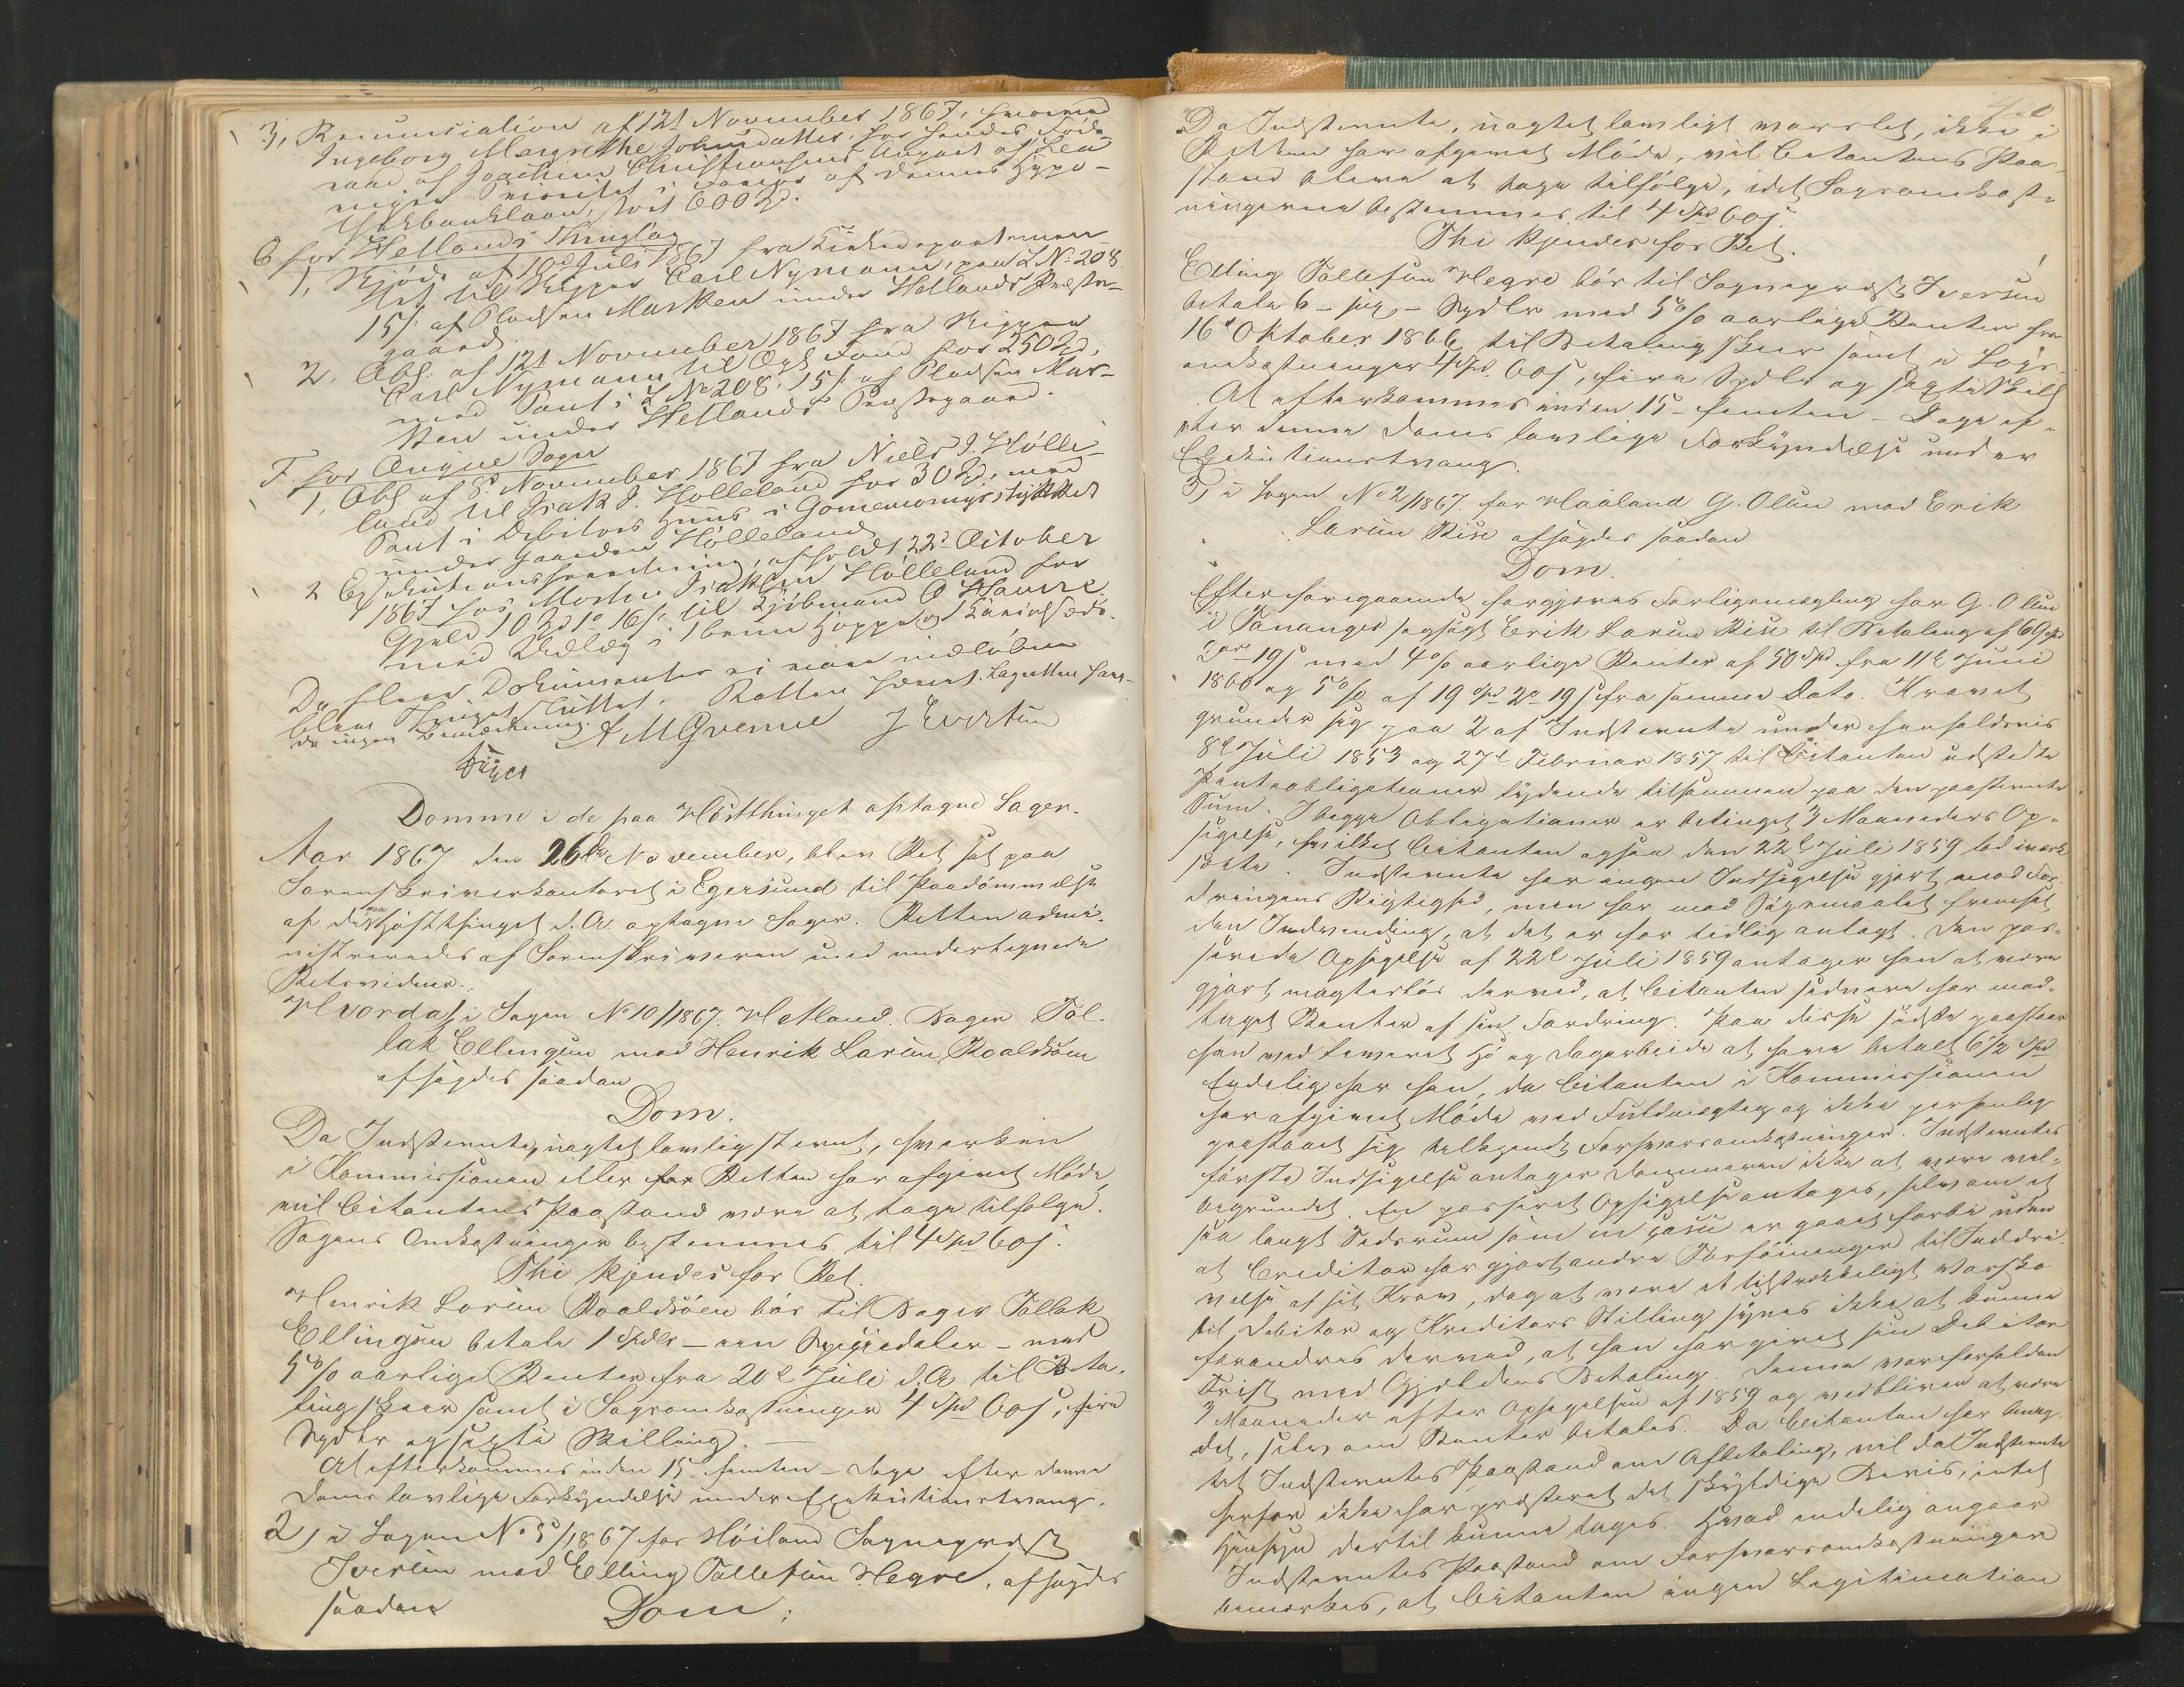 3, Renunciation af 12t November 1867, hvorved
Ingeborg Margrethe Johnsdatter, for hendes Føde-
raad af Joachim Christiansens Anpart af Lea
viger Prioritet i Faveur af dennes Hypo-
thekbanklaan, stort 600 Spd.
6 for Hetlands Thinglag
1, Skjøde af 10d Juli 1867 fra Kirkedepartemen-
tet til Skipper Carl Nymann, paa L No 208
15/ af Pladsen Marken under Hetlands Præste-
gaard.
2. Obl. af 12t November 1867 fra Skipper
Carl Nymann til Opl. Fond for 250 Spd,
med Pant i L No 208. 15/ af Pladsen Mar-
ken under Hetlands Præstegaard.
F. for Augne Sogn
1, Obl af 8d November 1867 fra Niels I. Hølle-
land til Isak I. Hølleland for 30 Spd, med
Pant i Debitors Huus i
under Gaarden Hølleland
2 Exekutionsforretning, afholdt 22d October
1867 hos Morten Isaksen Hølleland for
Gjeld 10 Spd 1 16/ til Kjøbmand O Haure
med Udlæg i 1 brun Hoppe og
Da flere Dokumenter ei vare indløbne
blev Thinget sluttet. Retten hævet. Lagretten har
da ingen Bemærkning.
A M Qvenne J Evertsen
Domme i de paa Høstthinget optagne Sager.
Aar 1867 den 26de November, blev Ret sat paa
Sorenskriverkontoret i Egersund til Paadømmelse
af de paa Høstthinget d.A. optagne Sager. Retten admi-
nistreredes af Sorenskriveren med undertegnede
Retsvidner.
Hvorda 1, i Sagen No 10/1867. Hetland. Bager Tol-
lak Ellingsen mod Henrik Larsen Roaldsøen
afsagdes saadan
Dom.
Da Indstevnte, uagtet lovlig stevnt, hverken
i Kommissionen eller for Retten har afgivet Møde,
vil Citantens Paastand være at tage tilfølge.
Sagens Omkostninger bestemmes til 4 Spd 60 s.
Thi kjendes for Ret.
Henrik Larsen Roaldsøen bør til Bager Tollak
Ellingsen betale 1 Spdlr – een Speciedaler – med
5% aarlige Renter fra 20d Juli d.A til Beta-
ling skeer samt i Sagsomkostninger 4 Spd 60 s, fire
Spdlr og sexti Skilling.
At efterkommes inden 15 – femten – Dage efter denne
Doms lovlige Forkyndelse under Exekutionstvang.
2, i Sagen No 5/1867 for Høiland Sogneprest
Iversen mod Elling Tollefsen Hegre, afsagdes
saadan Dom:
Da Indstevnte, uagtet lovligt varslet, ikke i
Retten har afgivet Møde, vil Citantens Paa-
stand blive at tage tilfølge, idet Sagsomkost-
ningerne bestemmes til 4 Spd 60 s.
Thi kjendes for Ret.
Elling Tollefsen Hegre bør til Sogneprest Iversen
betale 6 – sex – Spdlr med 5% aarlige Renter fra
16d Oktober 1866 til Betaling skeer samt i Sags-
omkostninger 4 Spd. 60 s, fire Spdlr og sexti Skill
At efterkommes inden 15 – femten – Dage ef-
ter denne Doms lovlige Forkyndelse under
Exekutionstvang.
3, i Sagen No 2/1867. for Haaland G. Olsen mod Erik
Larsen Riise afsagdes saadan
Dom.
Efter foregaaende forgjæves Forligsmægling har G. Olsen
i Tananger sagsøgt Erik Larsen Riise til Betaling af 69 Spd
2 ort 19 s med 4% aarlige Renter af 50 Spd fra 11t Juni
1860 og 5% af 19 Spd 2 ort 19 s fra samme Dato. Kravet
grunder sig paa 2 af Indstevnte under henholdsvis
8t Juli 1853 og 27t Februar 1857 til Citanten udstedte
Panteobligationer lydende tilsammen paa den paastevnte
Sum. I begge Obligationer er betinget 3 Maaneders Op-
sigelse, hvilket Citanten ogsaa den 22t Juli 1859 lod iværk-
sætte. Indstevnte har ingen Indsigelse gjort mod For-
dringens Rigtighed, men har mod Søgsmaalet fremsat
den Indvending, at det er for tidlig anlagt. Den pas-
serede Opsigelse af 22t Juli 1859 antager han at være
gjort magtesløs derved, at Citanten sednere har mod-
taget Renter af sin Fordring. Paa disse sidste paastaar
han ved leveret Hø og Dagarbeide at have betalt 6 1/2 Spd
Endelig har han, da Citanten i Kommissionen
har afgivet Møde ved Fuldmægtig og ikke personlig
paastaaet sig tilkjendt Forsvarsomkostninger. Indstevntes
første Indsigelse antager Dommeren ikke at være vel-
begrundet. En passeret Opsigelse antages, selvom et
saa langt Tidsrum som in casu er gaaet forbi uden
at Creditor har gjort andre Forføininger til Inddri-
velse af sit Krav, dog at være et tilstrækkeligt Varsko
til Debitor og Kreditors Stilling synes ikke at kunne
forandres derved, at han har givet sin Debitor
Frist med Gjældens Betaling. Denne var forfalden
3 Maaneder efter Opsigelsen af 1859 og vedbliver at være
det, selv om Renter betales. Da Citanten har benæg-
tet Indstevntes Paastand om Afbetaling, vil da Indstevnte
herfor ikke har præsteret det skyldige Bevis, intet
Hensyn dertil kunne tages. Hvad endelig angaar
Indstevntes Paastand om Forsvarsomkostninger
bemærkes, at Citanten ingen Legitimation